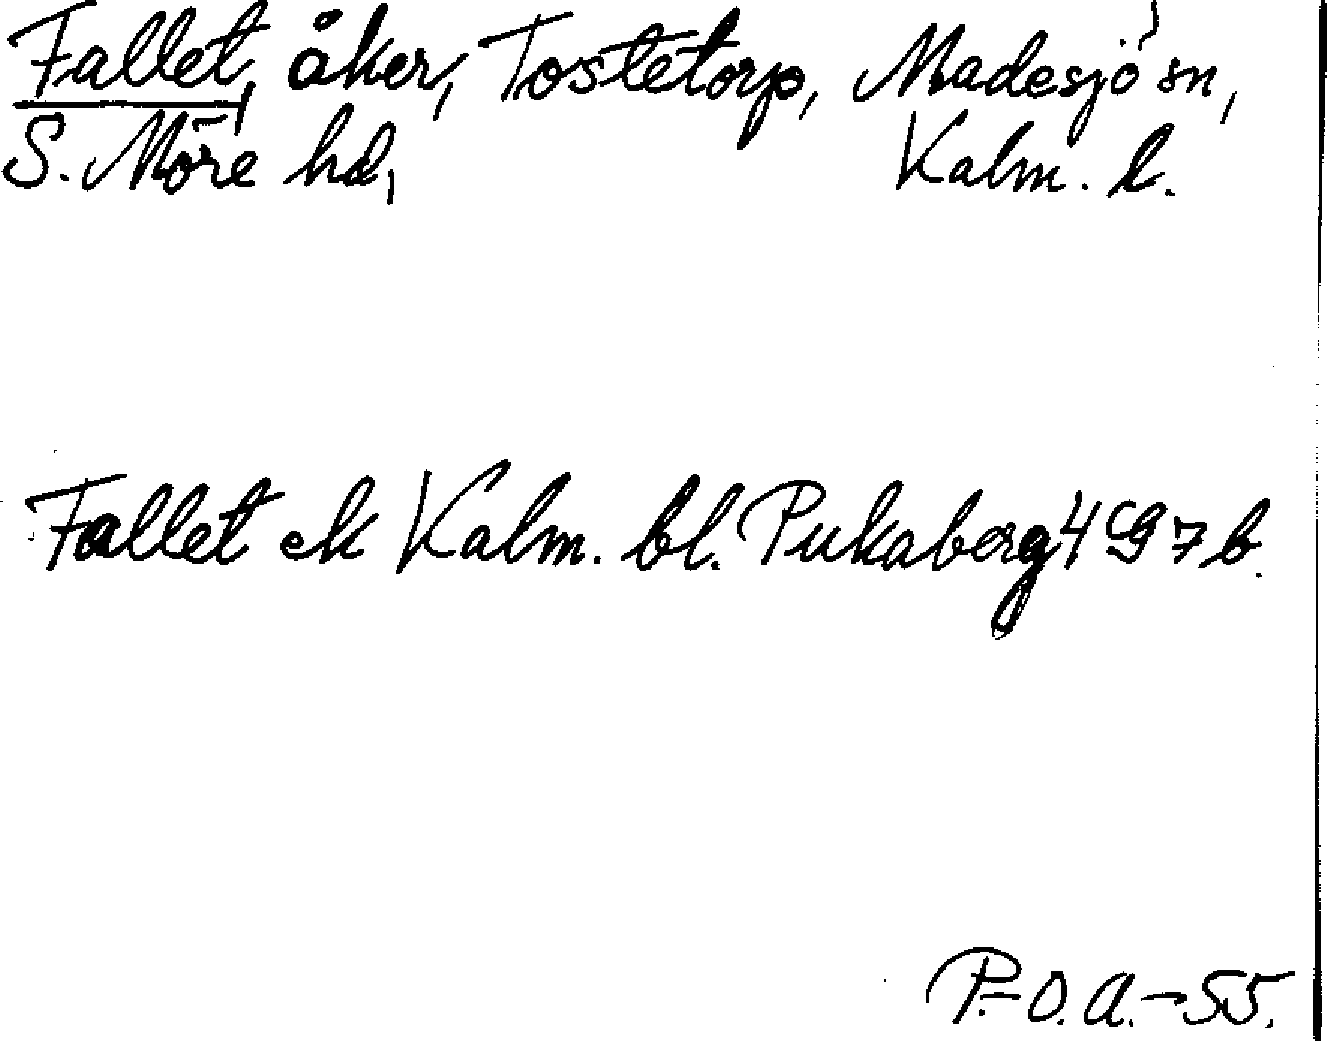 Fallet, åker, Tostetorp, Madesjö sn,
S. Möre hd, Kalm. l.
Fallet ek Kalm. bl. Pukaberg 4 G 7 b.
P.-O. A. -55.